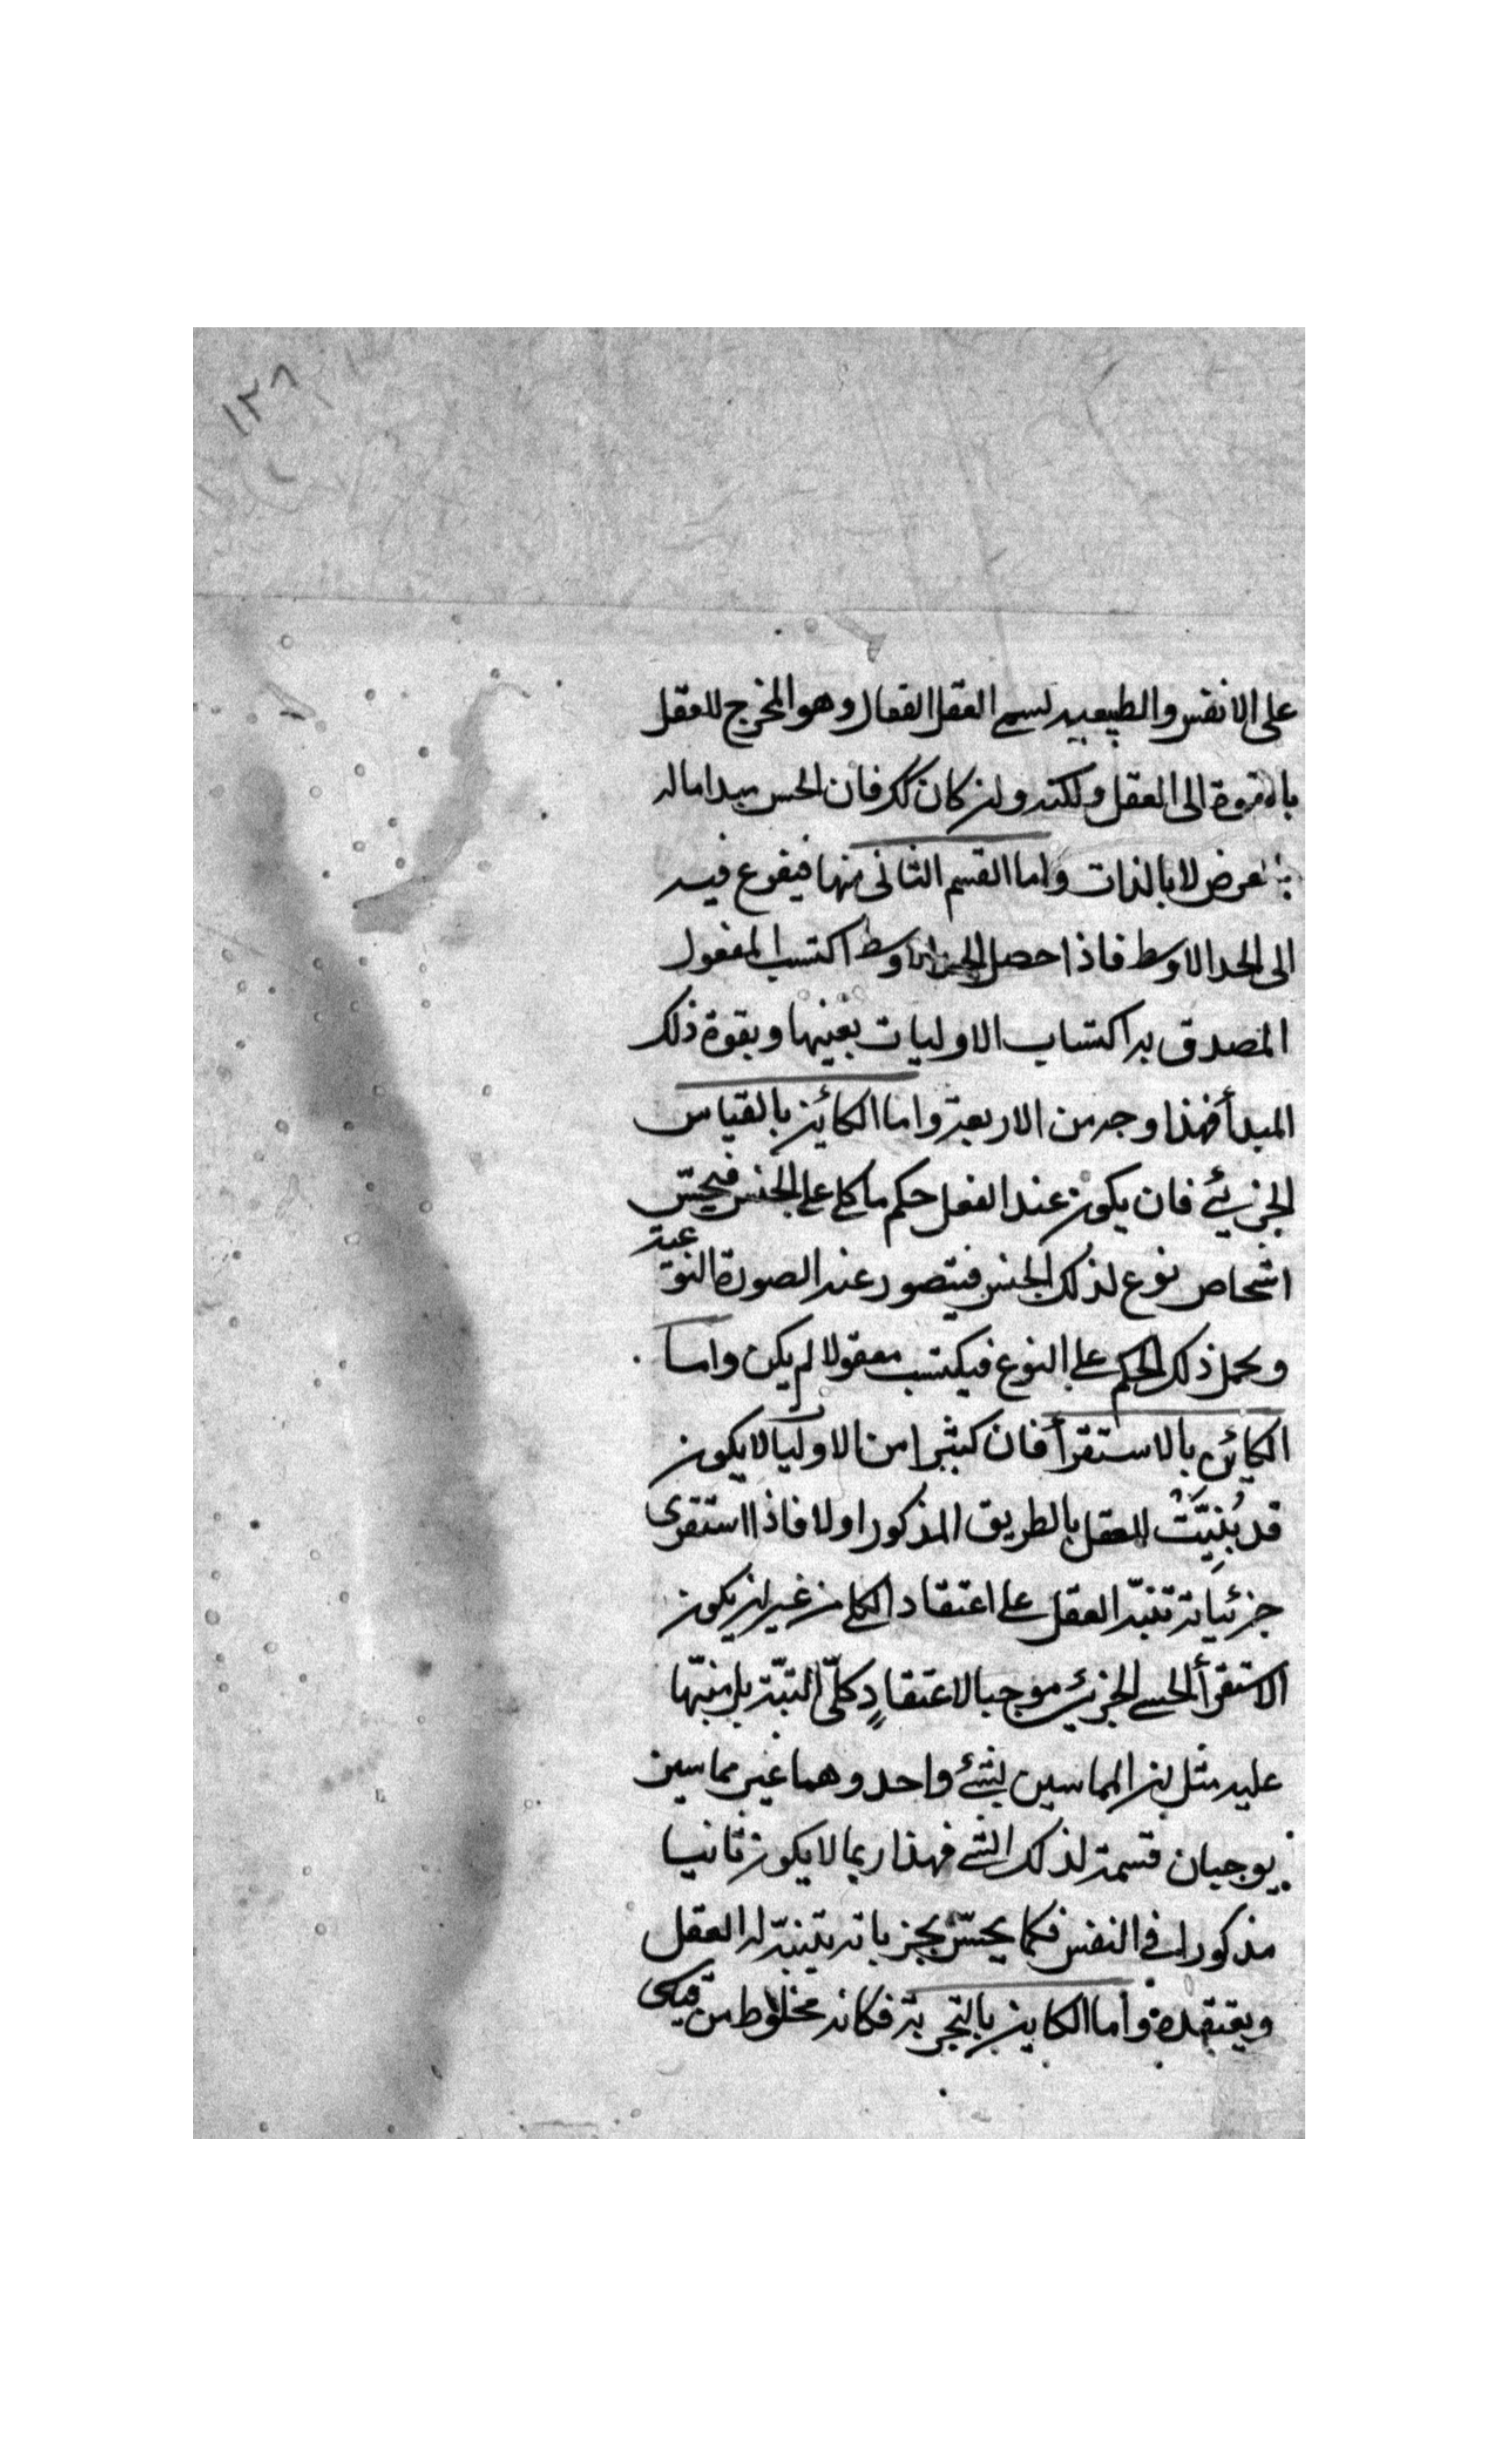 ١٢٨
على الانفس والطبيعيه لسمى العقل الفعال وهو المخرج للعقل
بالقوة الى العقل ولكنه وان كان ككر فان الحس مبدا ما له
بالعرض لا بالذات واما القسم الثانى منها فيفرع فيه
الى الحد الاوسط فاذا حصل الاوسط اكتسب المعقول
المصدق به اكتساب الاوليات بعينها وبقوة ذلك
المبدأ فهذا وجه من الاربعة واما الكائن بالقياس
الجزئي فان يكون عند العقل حكم ما كلى على الجنس فيحسّ
اشخاص نوع لذلك الجنس فيتصور عنه الصورة النوعية
ويحمل ذلك الحكم على النوع فيكتسب معقولا لم يكن واما
الكائن بالاستقرأ فان كثيرا من الاوليا لا يكون
قد بُنِيَّتْ للعقل بالطريق المذكور اولا فاذا استقرى
جزئياته تنبّه العقل على اعتقاد الكلى من غير ان يكون
الاستقرأ الحسى الجزئي موجبا لاعتقادٍ كلّى البتّة بل منبّها
عليه مثل ان المماسين لشئ واحد وهما غير مماسين
يوجبان قسمة لذلك الشئ فهذا ربما لا يكون ثانيا
مذكورا فى النفس فكما يحسّ بجزياته يتنبّه له العقل
ويعتقده واما الكاين بالتجربة فكانه مخلوط من قياس